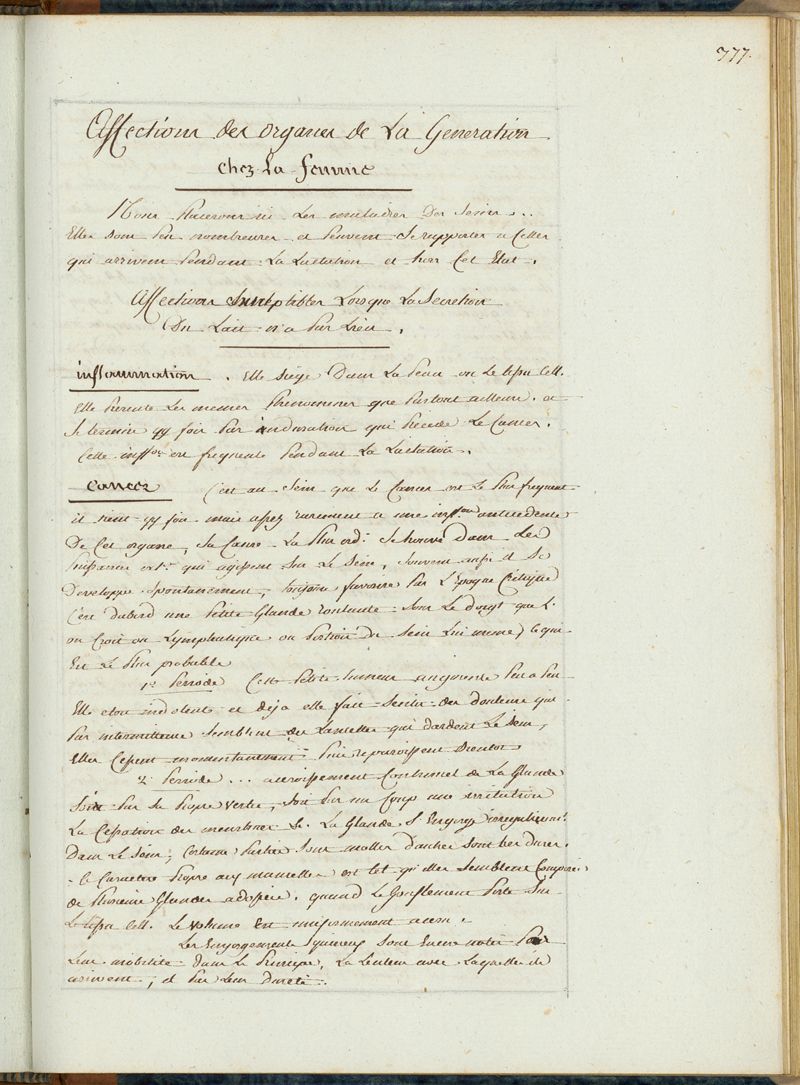 777.
Affections des organes de La Generation
chez La femme
Nous Placerons ici Les maladies Des Seins..
Elles sont Peu nombreuses et Peuvent Se rapporter a Celles
qui arrivent Pendant La Lactation et hors Cet Etat.
Affections Susceptibles Lorsque La Secretion
Du Lait n'a Pas Lieu.
inflammation. Elle siége Dans La Peau ou Le tissu Cell.
Elle Presente Les memes Phenomenes que Partout ailleurs. et
Se termine qq fois Par induration qui Précede Le Cancer.
Cette inflon. est frequente Pendant La Lactation.
Cancer C'est au Sein que Le Cancer est Le Plus frequent
il vient qq fois mais assez rarement a une inflon antecedente
De Cet organe, Sa Cause La Plus ordre. Se trouve Dans Les
Puissances extes. qui agissent Sur Le Sein, Souvent aussi il Se
Developpe Spontanement, toujours favorisé Par L'Epoque Critique
C'est Dabord une Petite Glande roulante Sous Le Doigt que L'
on Croit ou Lymphatique ou Portion du Sein Lui meme, ce qui
Est Le Plus probable
1re Periode Cette Petite tumeur augmente Peu a Peu
Elle est indolente et deja elle fait Sentir des Douleurs qui
Par intermittence Semblent des Lancettes qui dardent Le Sein,
Elles Cessent momentanement Puis reparoissent Bientot
2e Periode... accroissement Continuel de La Glande
Soit Par Sa Propre Vertu, Soit Par un Coup une irritation
La Cessation des menstrues &. La Glande S'Engorge irregulieremt.
Dans Le Sein, Certaines Parties Sont molles D'autres Sont tres Dures.
Le Caractere Propre aux mamelles est tel qu'elles Semblent Composées
de Plusieurs Glandes adossées. quand Le Gonflement Porte Sur
Le tissu Cell. Le Volume Est uniformement accru.
Les Engorgements Squirreux Sont Encore notés Par
Leur mobilité Dans Le Principe, La Lenteur avec Laquelle ils
arrivent, et Par Leur Dureté.